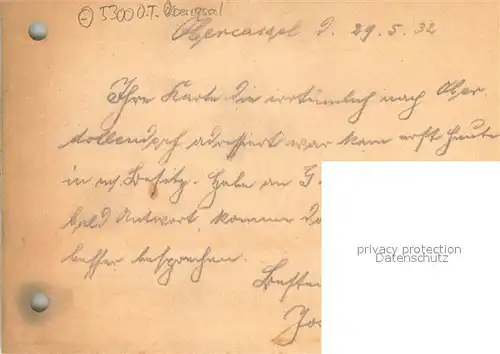 5300 O.T. Obercassel
Obercassel d. 29.5.32
Ihre Karte die irrtümlich nach Ober-
dollendorf adressiert war kam erst heute
in m. Besitz. Habe an G
bald Antwort, komme da
besser besprechen.
Besten
Jos
privacy protection
Datenschutz